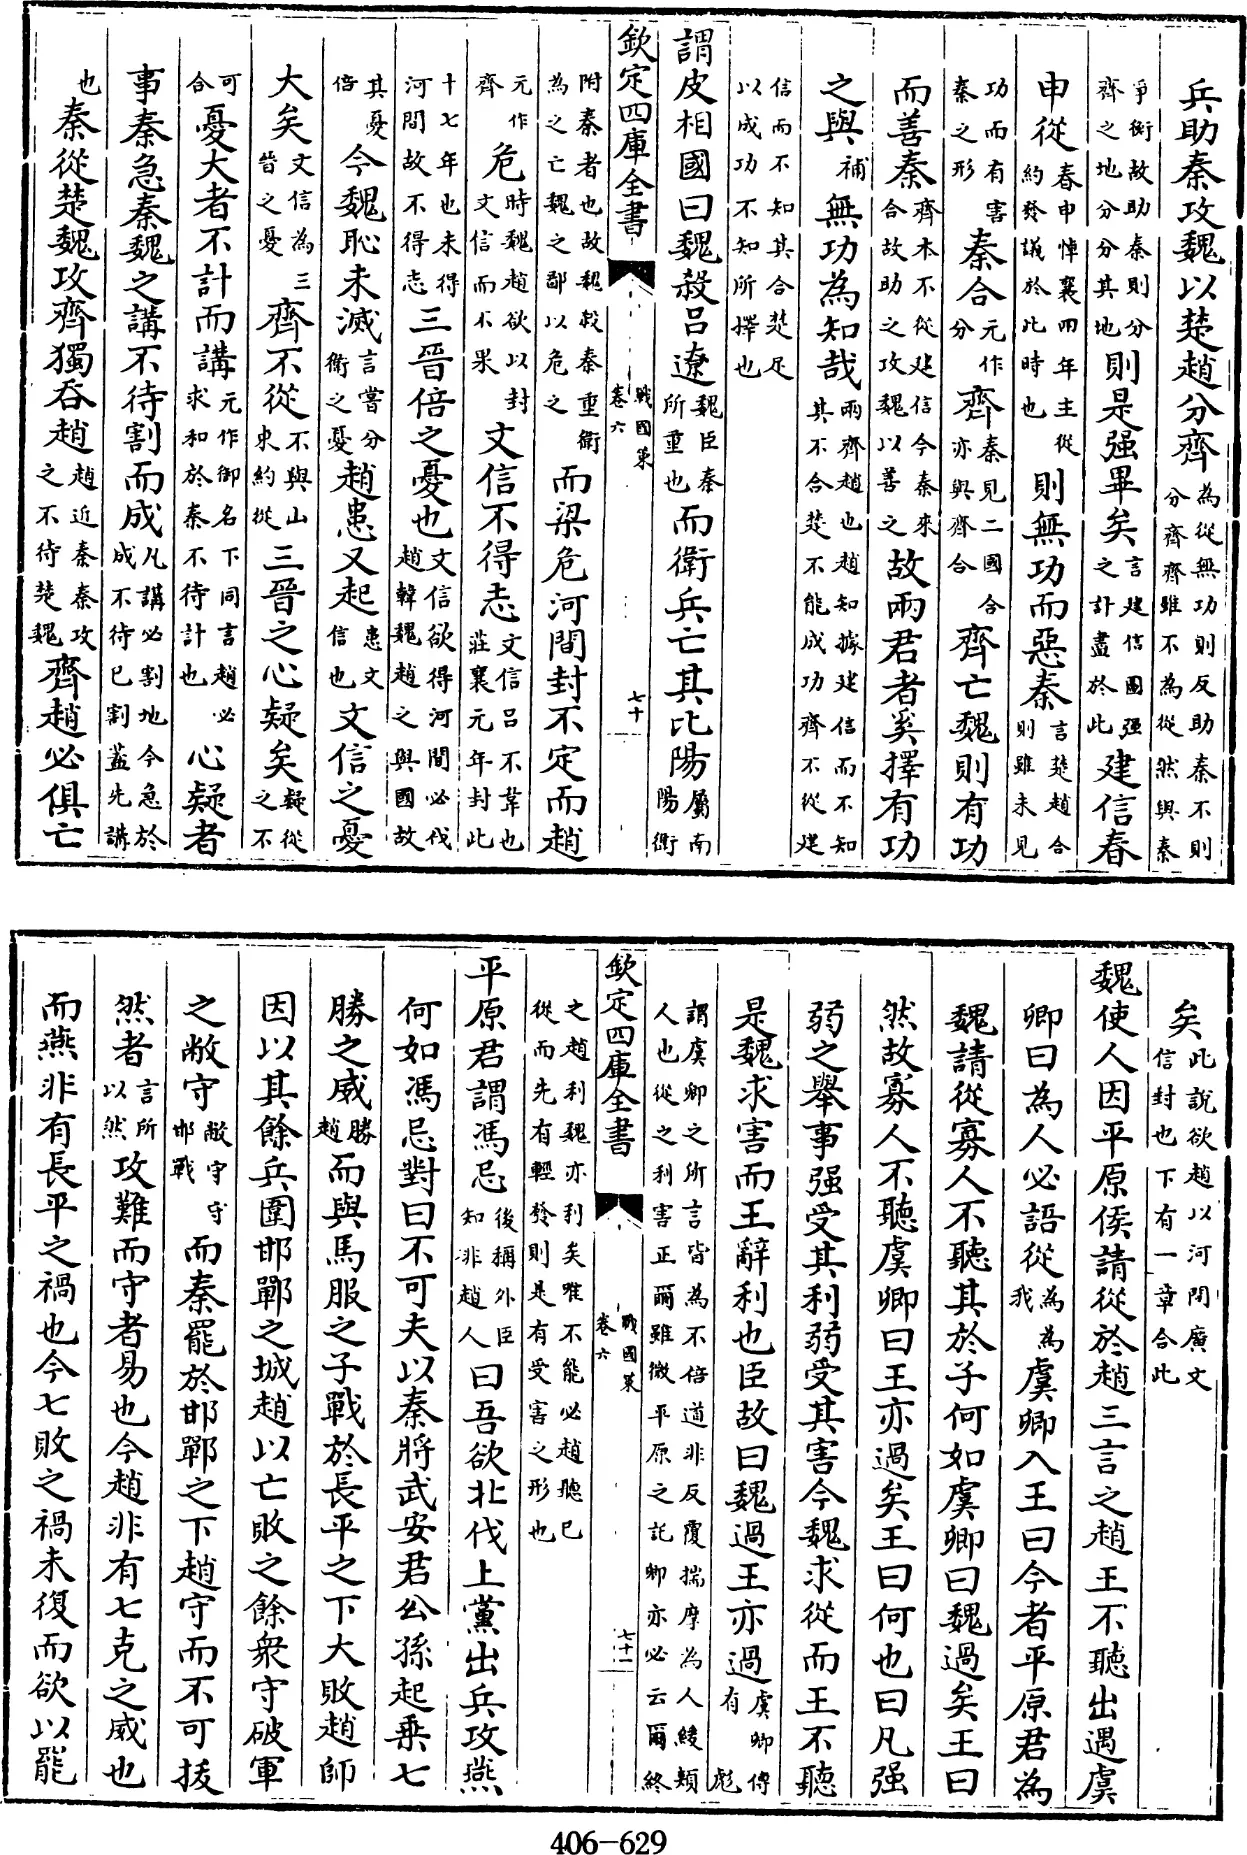 兵助秦攻魏以楚趙分齊為從無功則反助秦不則分齊齊雖不為從然與秦
爭衡故助秦則分齊之地分分其地則是强畢矣言建信國强之計盡於此建信春
申從春申悼襄四年主從約發議於此時也則無功而惡秦言楚趙合則雖未見
功而有害秦之形秦合元作分齊秦見二國合亦與齊合齊亡魏則有功
而善秦齊本不從建信今秦來合故助之攻魏以善之故兩君者奚擇有功
之與補無功為知哉兩齊趙也趙知據建信而不知其不合楚不能成功齊不從建
信而不知其合楚足以成功不知所擇也
謂皮相國曰魏殺吕遼魏臣秦所重也而衛兵亡其比陽屬南陽衛
欽定四庫全書 戰國策卷六 七十
附秦者也故魏殺秦重衛為之亡魏之鄙以危之而梁危河間封不定而趙
元作齊危時魏趙欲以封文信而不果文信不得志文信吕不韋也莊襄元年封此
十七年也未得河間故不得志三晉倍之憂也文信欲得河間必伐趙韓魏趙之與國故
其憂倍今魏恥未滅言嘗分衛之憂趙患又起患文信也文信之憂
大矣文信為三晉之憂齊不從不與山東約從三晉之心疑矣疑從之不
可合憂大者不計而講元作御名下同言趙必求和於秦不待計也心疑者
事秦急秦魏之講不待割而成凡講必割地今急於成不待已割蓋先講
也秦從楚魏攻齊獨吞趙趙近秦秦攻之不待楚魏齊趙必俱亡
矣此說欲趙以河間廣文信封也下有一章合此
魏使人因平原侯請從於趙三言之趙王不聽出遇虞
卿曰為人必語從為為我虞卿入王曰今者平原君為
魏請從寡人不聽其於子何如虞卿曰魏過矣王曰
然故寡人不聽虞卿曰王亦過矣王曰何也曰凡强
弱之舉事强受其利弱受其害今魏求從而王不聽
是魏求害而王辭利也臣故曰魏過王亦過虞卿傳有彪
謂虞卿之所言皆為不倍道非反覆揣摩為人綾頰人也從之利害正爾雖微平原之託卿亦必云爾終
欽定四庫全書 戰國策卷六 七十一
之趙利魏亦利矣唯不能必趙聽已從而先有輕發則是有受害之形也
平原君謂馮忌後稱外臣知非趙人曰吾欲北伐上黨出兵攻燕
何如馮忌對曰不可夫以秦將武安君公孫起乗七
勝之威勝趙而與馬服之子戰於長平之下大敗趙師
因以其餘兵圍邯鄲之城趙以亡敗之餘衆守破軍
之敝守敝守守邯戰而秦罷於邯鄲之下趙守而不可拔
然者言所以然攻難而守者易也今趙非有七克之威也
而燕非有長平之禍也今七敗之禍未復而欲以罷
406-629